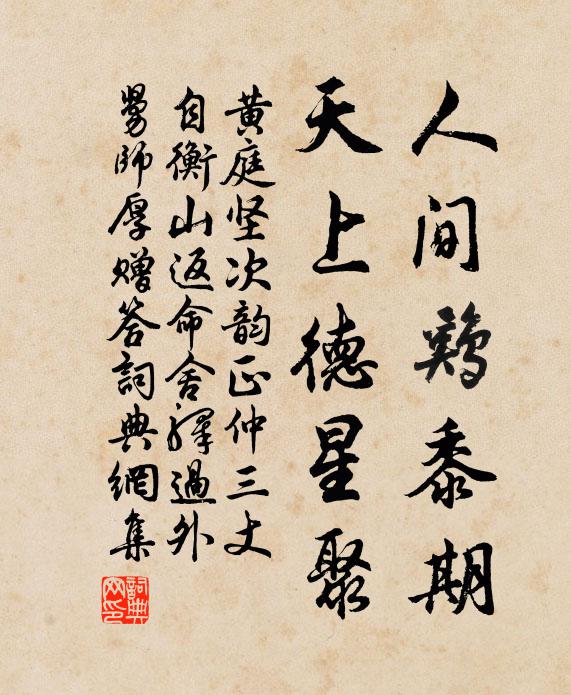 人间鸡黍期
天上德星聚
黄庭坚次韵正仲三丈
自衡山返命舍驿过外
舅师厚赠答詞典網集
詞典網印